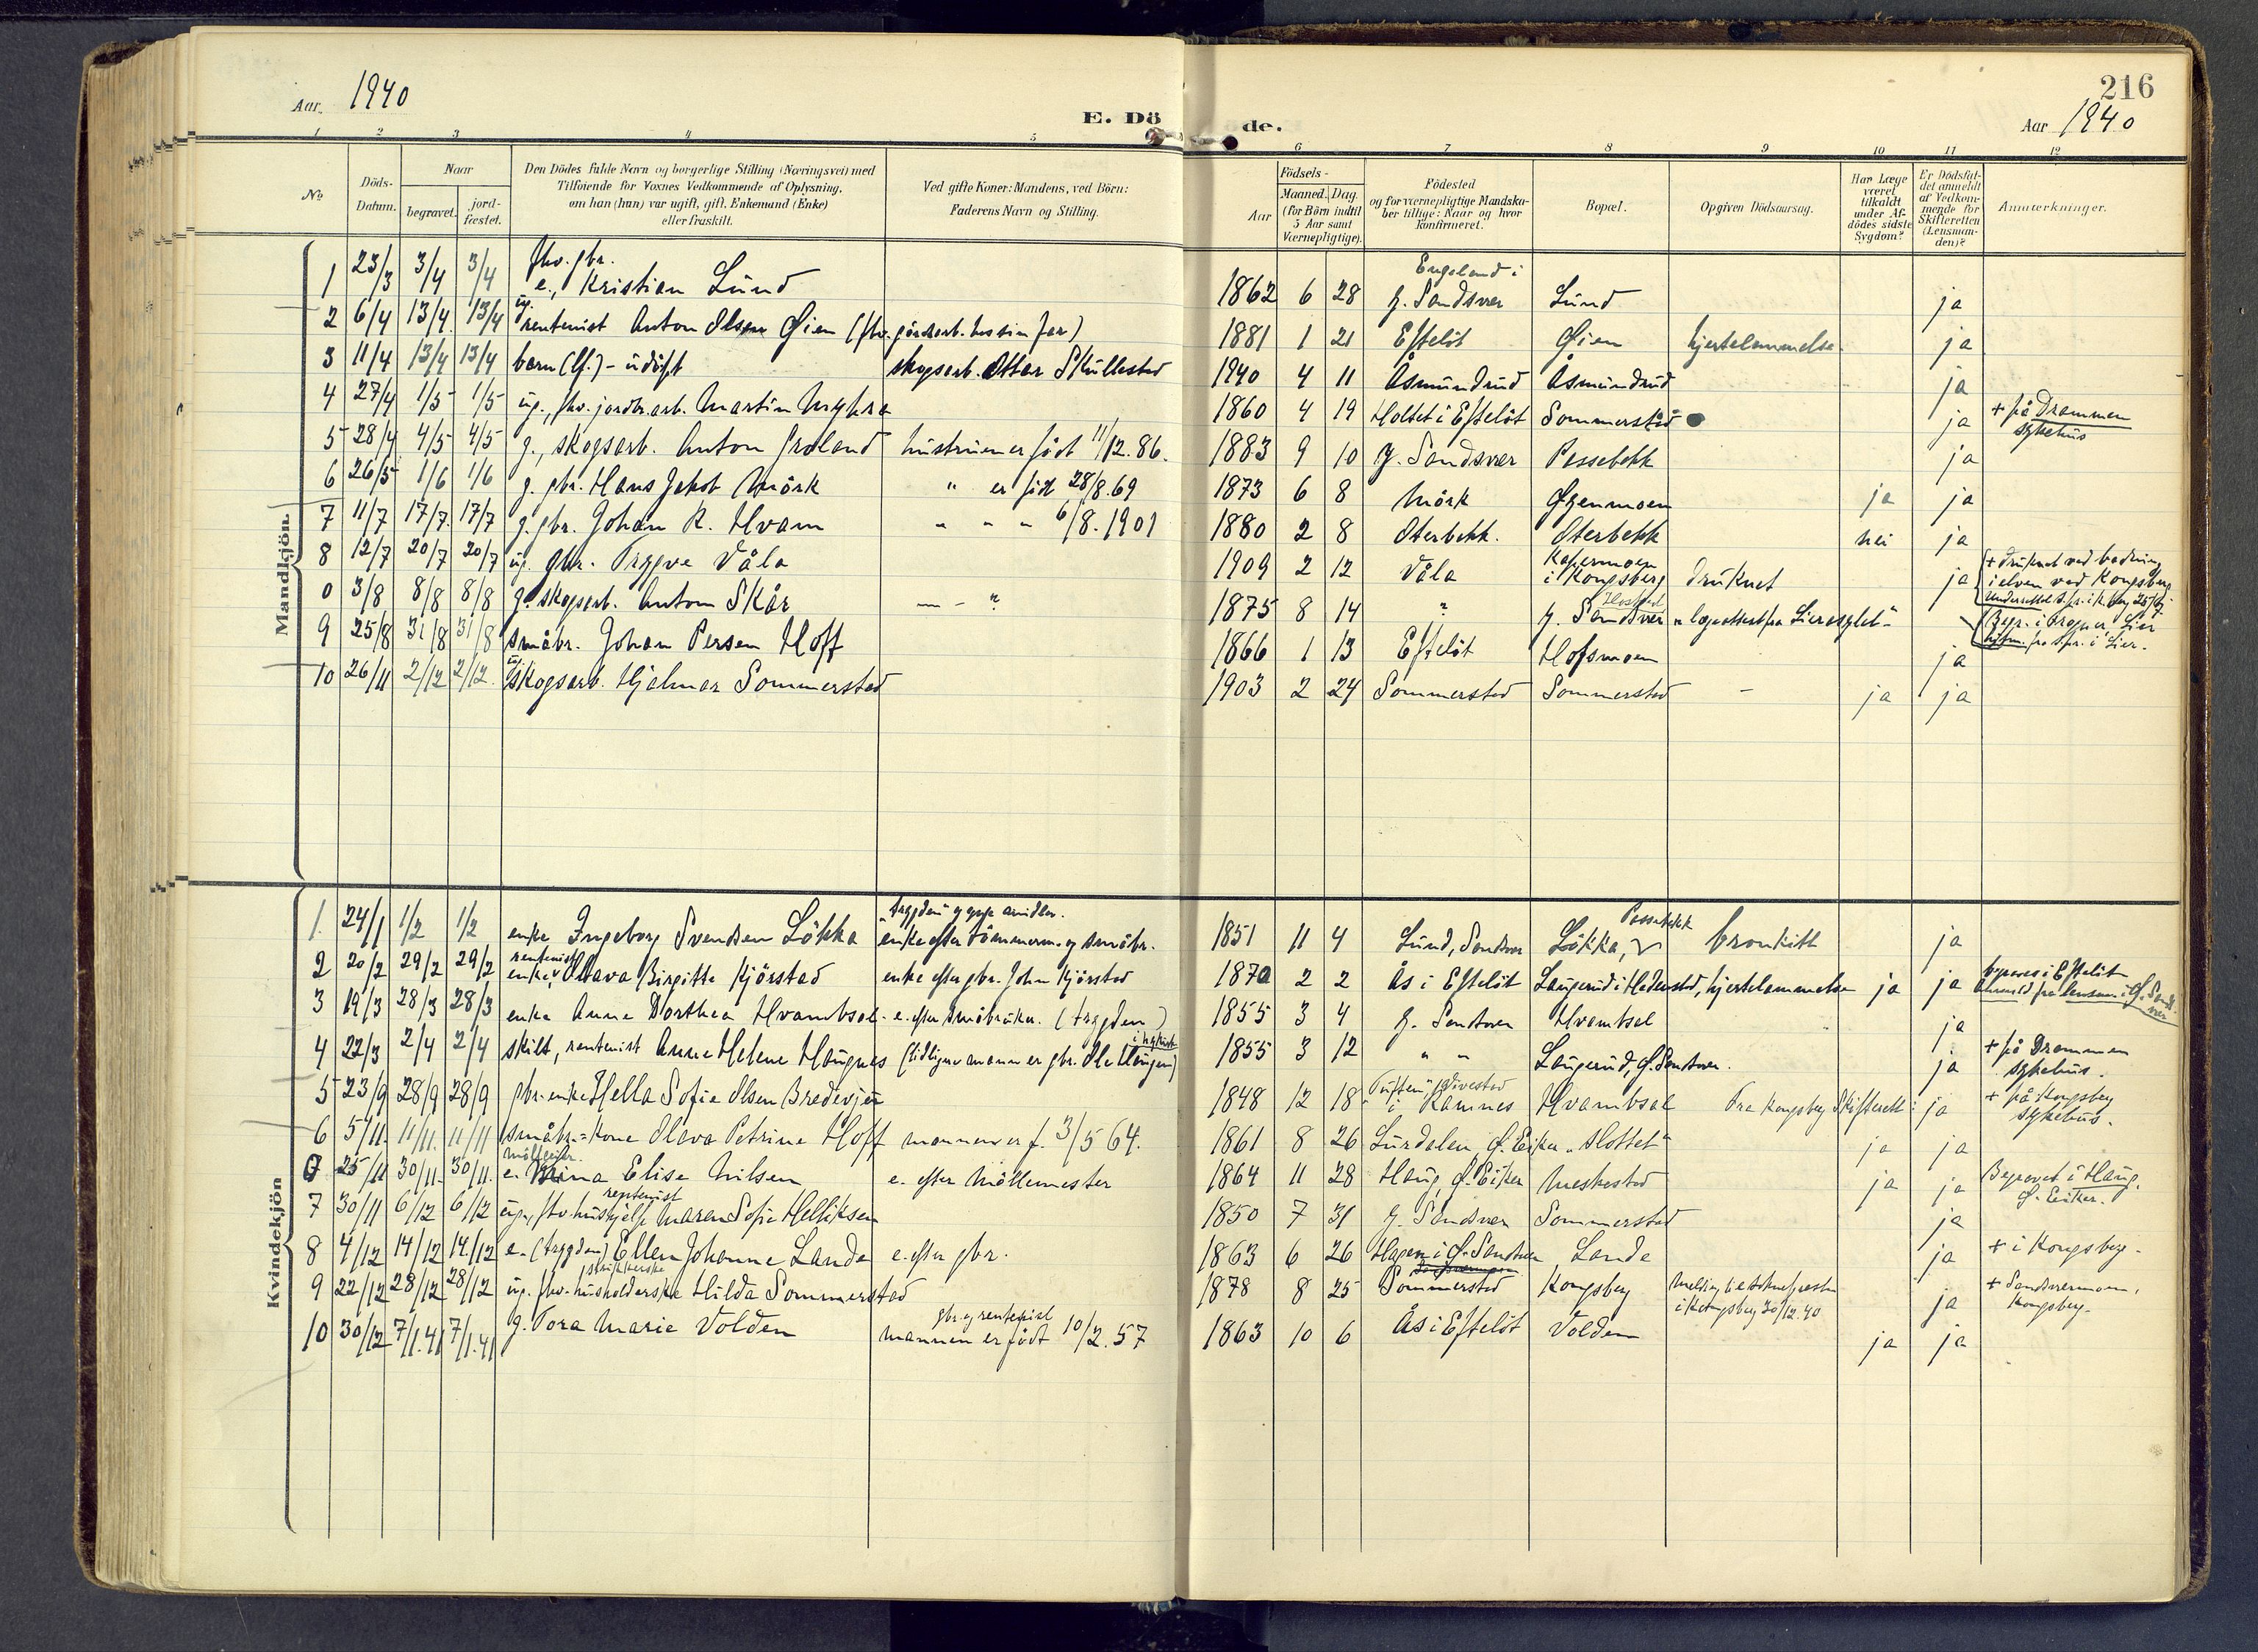 Aar 1940
E. Döde.
216
Aar 1940
1 2 3 4 5 6 7 8 9 10 11 12
No.
Döds-Datum.
Naar
begravet.
jord-fæstet.
Den Dödes fulde Navn og borgerlige Stilling (Næringsvei) med
Tilföiende for Voxnes Vedkommende af Oplysning,
om han (hun) var ugift, gift, Enkemand (Enke)
eller fraskilt.
Ved gifte Koner: Mandens, ved Börn:
Faderens Navn og Stilling.
Födsels-
Aar
Maaned. Dag.
(for Börn indtil
5 Aar samt
Værnepligtige).
Födested
og for værnepligtige Mandska-
ber tillige: Naar og hvor
konfirmeret.
Bopæl.
Opgiven Dödsaarsag.
Har Læge
været
tilkaldt
under Af-
dödes sidste
Sygdom?
Er Dödsfal-
det anmeldt
af Vedkom-
mende for
Skifteretten
(Lensman-
den)?
Anmærkninger.
Mandkjön.
1 23/3 3/4 3/4 fhv. gbr. e., Kristian Lund 1862 6 28 Engeland i Y. Sandsvær Lund ja
2 6/4 13/4 13/4 ug. rentenist Anton Olsen Øien (fhv. gårdsarb. hos sin far) 1881 1 21 Efteløt Øien hjertelammelse ja
3 11/4 13/4 13/4 barn (lf.) - udöpt skogsarb. Ottar Skullestad 1940 4 11 Åsmundrud Åsmundrud ja
4 27/4 1/5 1/5 ug., fhv. jordbr.arb. Martin Myhre 1860 4 19 Holtet i Efteløt Sommerstad ja + på Drammen sykehus
5 28/4 4/5 4/5 g., skogsarb. Anton Froland hustruen er född 11/12.86. 1883 9 10 Y. Sandsvær Passebekk ja
6 26/5 1/6 1/6 g. gbr. Hans Jakob Mörk " er född 28/8.69 1873 6 8 Mörk Øgenmoen ja ja
7 11/7 17/7 17/7 g. gbr. Johan R. Hvam " " " 6/8.1901 1880 2 8 Oterbekk. Oterbekk nei ja
8 12/7 20/7 20/7 ug. gbr. Trygve Våla 1909 2 12 Våla i Kongsberg druknet ja + druknet ved badning i elven ved Kongsberg
0 3/8 8/8 8/8 g. skogsarb. Anton Skår — - " 1875 8 14 " Y. Sandsvær "legeattest fra Lier asylet" Begr. i Lier
9 25/8 31/8 31/8 småbr. Johan Persen Hoff 1866 1 13 Efteløt Hofsmoen ja
10 26/11 2/12 2/12. ug. skogsarb. Hjalmar Sommerstad 1903 2 24 Sommerstad Sommerstad - ja ja
Kvindekjön
1. 24/1 1/2 1/2 enke Ingeborg Svendsen Lökka enke efter tömmerm. og småbr. 1851 11 4 Lund, Sandsvær Lökka, Passebekk bronkitt ja
2 20/2 29/2 29/2 rentenist enke Oltava Birgitte Kjörstad enke efter gbr. John Kjörstad 1870 2 2 Ås i Efteløt Laugerud i Hedenstad, hjertelammelse ja ja begraves i Efteløt
3 19/3 28/3 28/3 enke Anne Dorthea Hvambsal - e. efter småbruker. (trygden) 1855 3 4 Y. Sandsvær Hvambsal ja
4 22/3 2/4 2/4 skilt, rentenist Anne Helene Haugnes (tidligere mann er gbr. Ole Haugen) 1855 3 12 " " Laugerud, Ø. Sandsvær. ja + på Drammen sykehus.
5 23/9 28/9 28/9 gbr.-enke Hella Sofie Olsen Bredevjen 1848 12 18 i Ramnes Hvambsal Fra Kongsberg Skifterett: ja + på Kongsberg sykehus.
6 5/11 11/11. 11/11 småbr.-kone Olava Petrine Hoff mannen er f. 3/5 64. 1861 8 26 Lurdalen, Ø. Eiker "Slottet" ja ja
0 25/11 30/11. 30/11. e. Elise Nilsen e. efter Möllemester 1864 11 28 Haug, Ø. Eiker Meskestad ja ja Begravet i Haug, Ø. Eiker.
7 30/11 6/12 6/12 rentenist ug., fhv. hushjelp Maren Sofie Helliksen 1850 7 31 Y. Sandsvær Sommerstad ja
8 4/12 14/12 14/12 e. (trygden) Ellen Johanne Lande e. efter gbr. 1863 6 26 Hagen i Ø. Sandsvær Lande ja + i Kongsberg.
9 22/12 28/12 28/12 ug. fhv. husholderske Hilda Sommerstad 1878 8 25 Sommerstad Kongsberg i Kongsberg 30/12.40 ja + Sandsværmoen, Kongsberg.
10 30/12 7/1.41 7/1.41 g. Tora Marie Volden gbr. og rentenist mannen er född 10/2.57 1863 10 6 Ås i Efteløt Volden ja ja